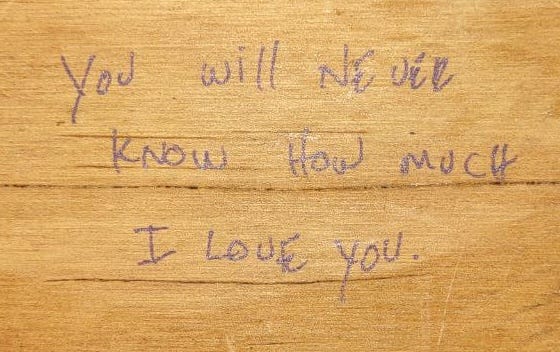 You will NEVER
KNOW HOW MUCH
I LOVE YOU.